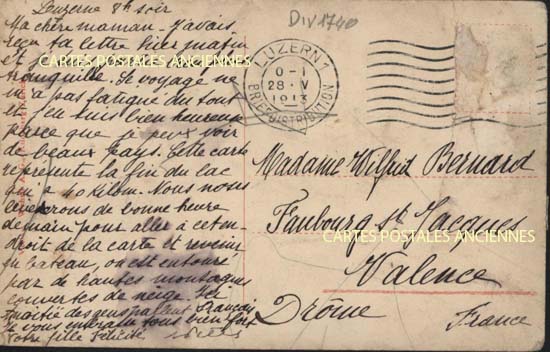 Luzerne 8h soir
Ma chère maman - J'avais
reçu ta lettre hier matin
et
tranquille. Le voyage ne
m'a pas fatigué du tout
et j'en suis bien heureuse
parce que je peux voir
de beaux pays. Cette carte
représente la fin du lac
qui a 40 kilom. Nous nous
lèverons de bonne heure
demain pour aller à cet en-
droit de la carte et revenir
en bateau, on est entouré
par de hautes montagnes
couvertes de neige. Ici
moitié des gens parlent français
Je vous embrasse tous bien fort
votre fille Félicité
DIV1740
LUZERN 1
0-1
28·V
1913
BRIEFDISTRIBUTION
Madame Wilfrid Bernard
Faubourg St Jacques
Valence
Drôme
France
CARTES POSTALES ANCIENNES
CARTES POSTALES ANCIENNES